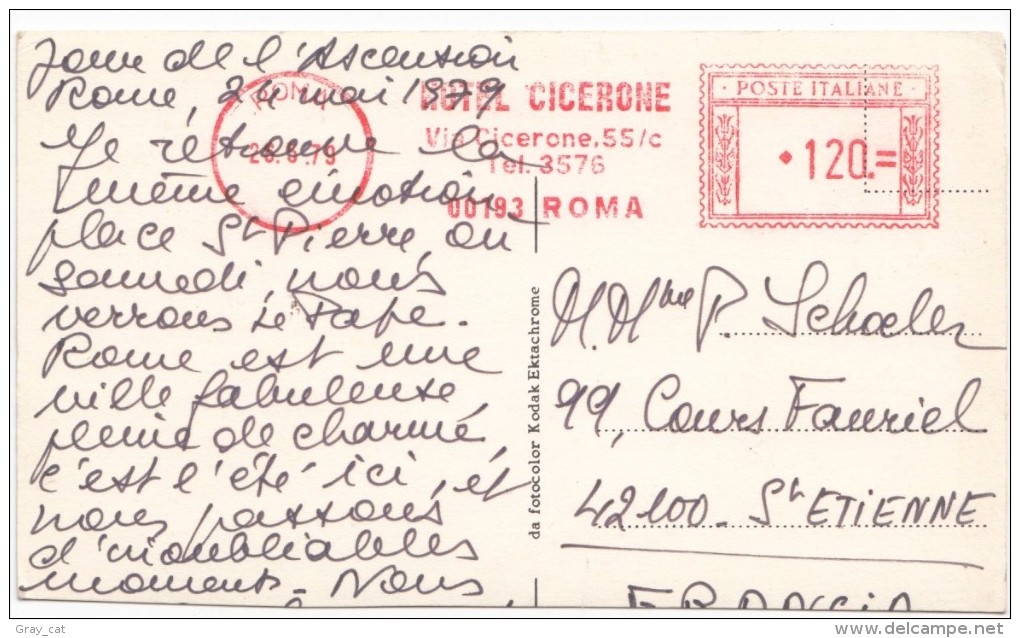 Jour de l'Ascension
Rome, 24 mai 1979
Je retrouve la
même émotion
place St Pierre, où
samedi, nous
verrons le Pape.
Rome est une
ville fabuleuse,
pleine de charme,
c'est l'été ici, et
nous passons
d'inoubliables
moments. Nous
ROMA
79
HOTEL CICERONE
Via Cicerone, 55/c
Tel. 3576
00193 ROMA
POSTE ITALIANE
120.=
da fotocolor Kodak Ektachrome
M. Mme P. Schoeler
99, Cours Fauriel
42100 - St ETIENNE
FRANCIA
Gray_cat
delcampe.net